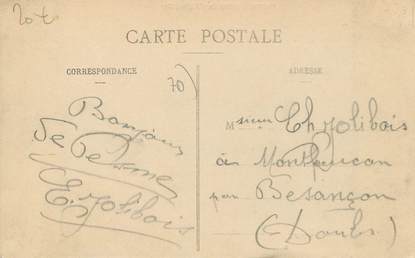 CARTE POSTALE
CORRESPONDANCE
70)
Bonjour
De Pesmes
E. Jolibois
ADRESSE
Msieur Ch Jolibois
à Montfaucon
par Besançon
(Doubs)